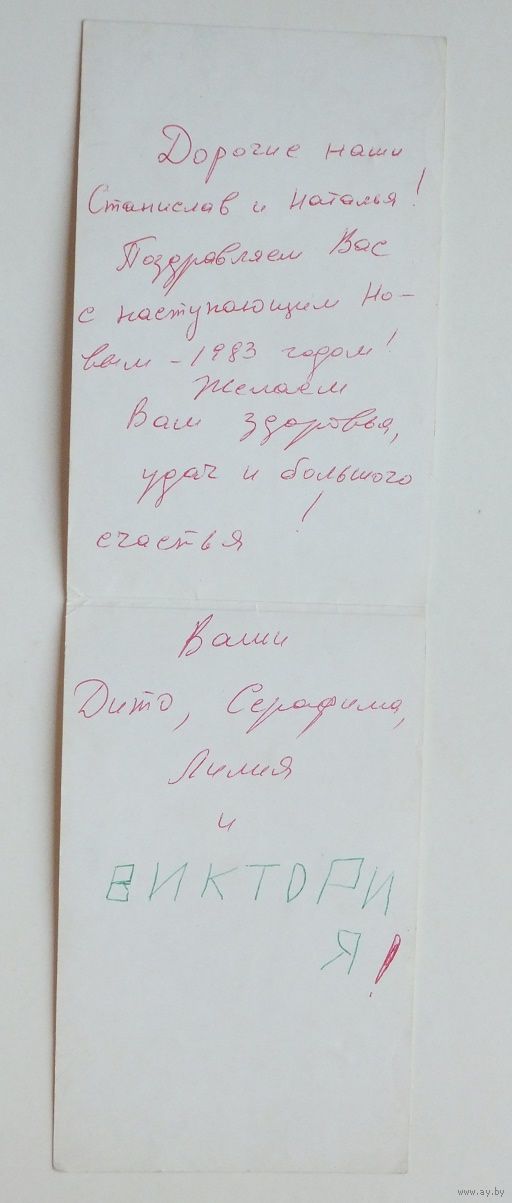 Дорогие наши
Станислав и Наталья!
Поздравляем Вас
с наступающим Но-
вым - 1983 годом!
Желаем
Вам здоровья,
удач и большого
счастья!
Ваши
Дито, Серафима,
Лилия
и
ВИКТОРИ
Я!
www.ay.by